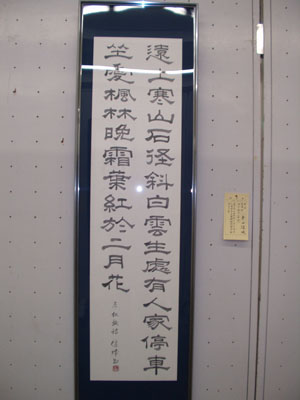 遠上寒山石径斜白雲生處有人家停車
坐愛楓林晩霜葉紅於二月花
杜牧詩